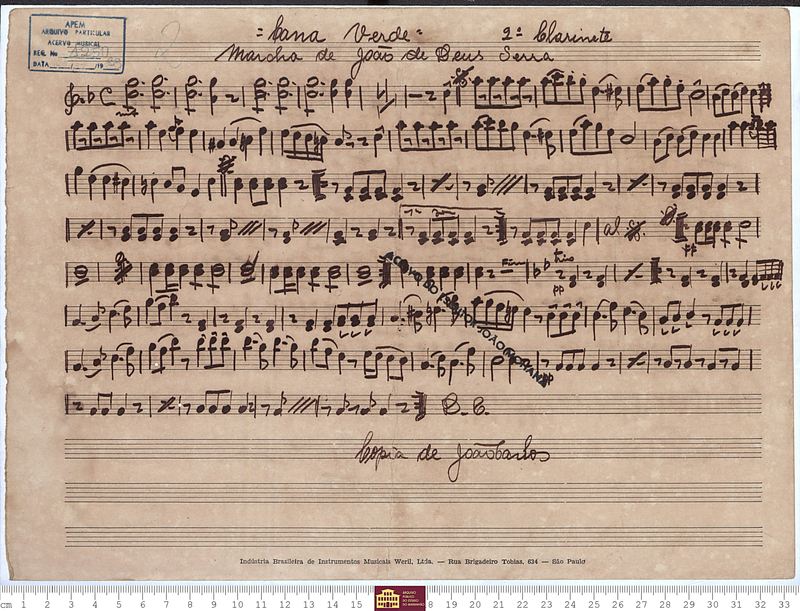 APEM
ARQUIVO PARTICULAR
ACERVO MUSICAL
REG. No
DATA / /19
= Cana Verde = 2º Clarinete
Marcha de João de Deus Serra
al
pp
Fim
trio
pp
D. C.
Copia de João Carlos
Indústria Brasileira de Instrumentos Musicais Weril, Ltda. — Rua Brigadeiro Tobias, 634 — São Paulo
cm 1 2 3 4 5 6 7 8 9 10 11 12 13 14 15 18 19 20 21 22 23 24 25 26 27 28 29 30 31 32 33